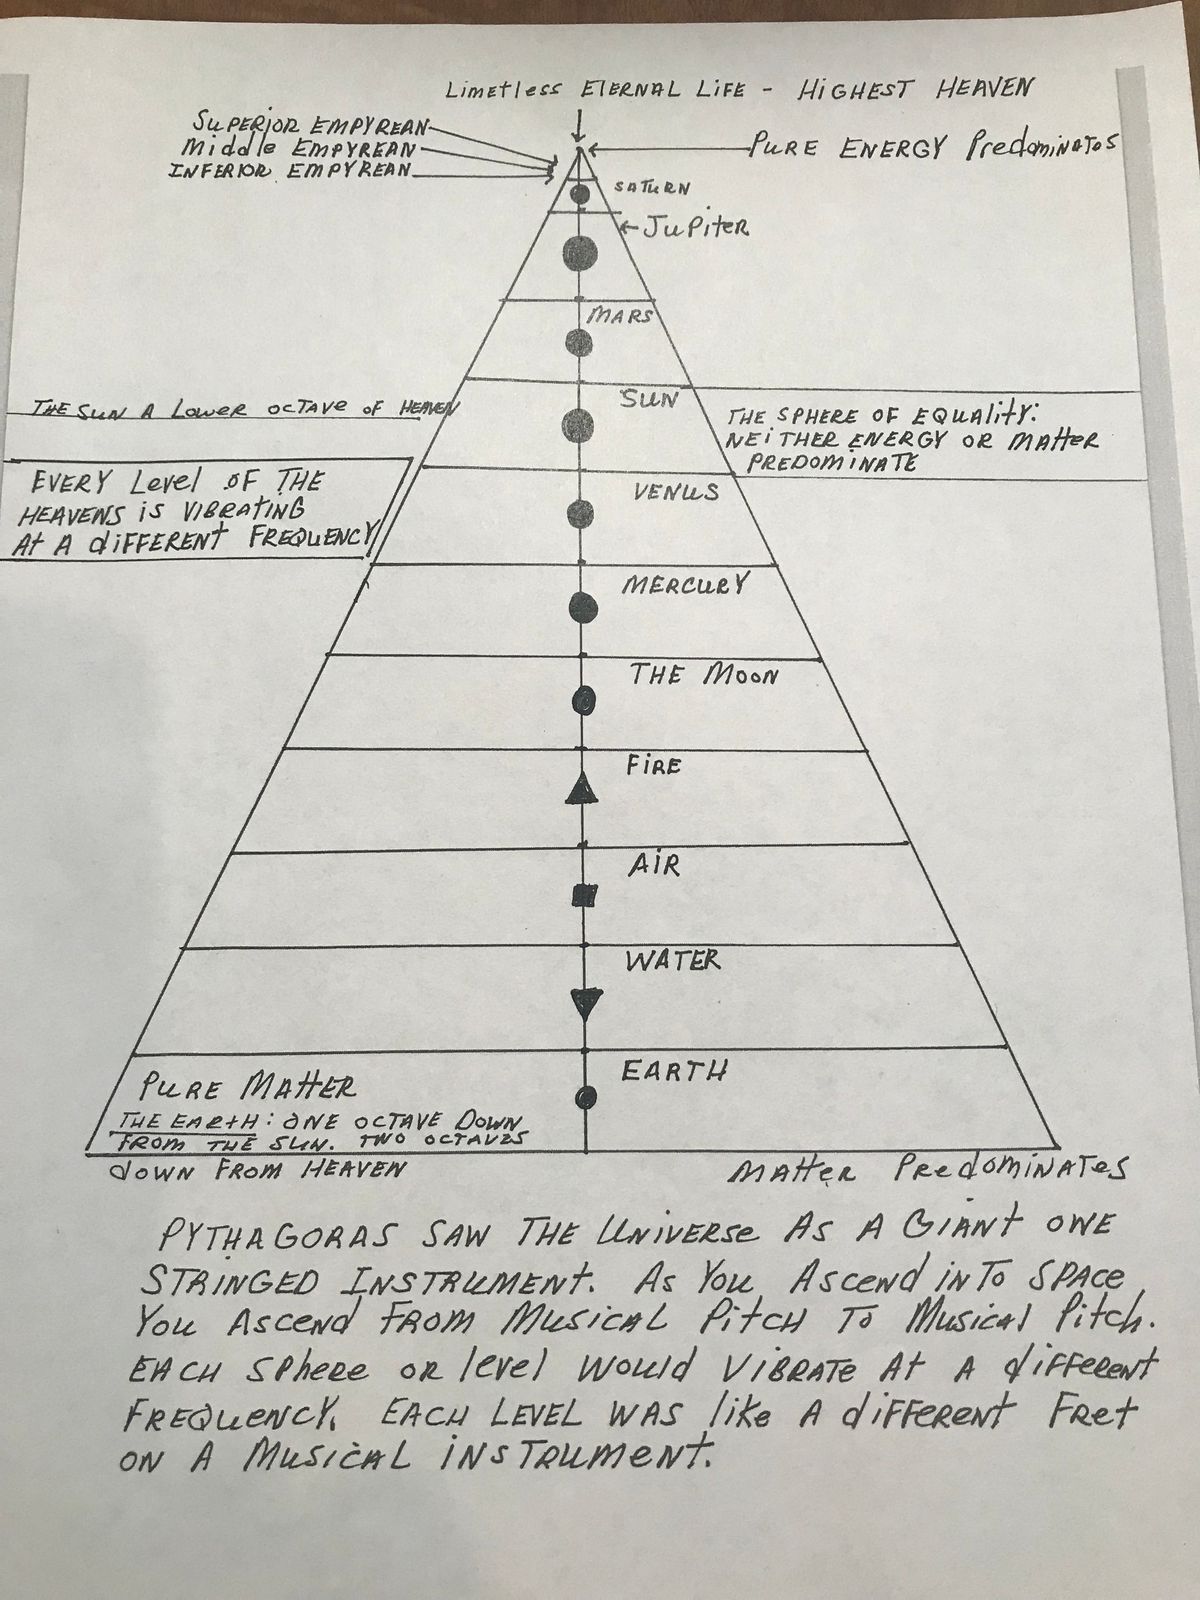 Limetless Eternal Life - Highest Heaven
Superior Empyrean
Middle Empyrean
Inferior Empyrean
Pure Energy Predominates
Saturn
Jupiter
Mars
Sun
The Sun a Lower Octave of Heaven
The Sphere of Equality:
Neither Energy or Matter
Predominate
Every Level of the
Heavens is Vibrating
At a Different Frequency
Venus
Mercury
The Moon
Fire
Air
Water
Earth
Pure Matter
The Earth: One Octave Down
From the Sun. Two Octaves
Down From Heaven
Matter Predominates
Pythagoras Saw the Universe As A Giant One
Stringed Instrument. As You Ascend into Space
You Ascend From Musical Pitch To Musical Pitch.
Each Sphere or level Would Vibrate At A different
Frequency. Each Level Was like A different Fret
on A Musical instrument.